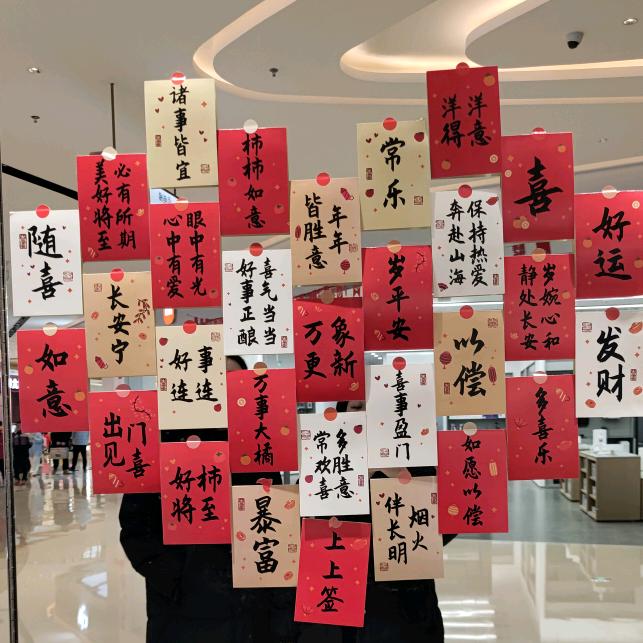 诸事皆宜
洋洋
得意
柿柿如意
常乐
必有所期
美好将至
喜
年年
皆胜意
保持热爱
奔赴山海
好运
眼中有光
心中有爱
随喜
喜气当当
好事正酿
岁平安
岁婉心和
静处长安
长安宁
万象
更新
以偿
发财
好事
连连
如意
喜事盈门
万事大橘
多喜乐
出门
见喜
多胜意
常欢喜
如愿以偿
好柿
将至
暴富
烟火
伴长明
上上签